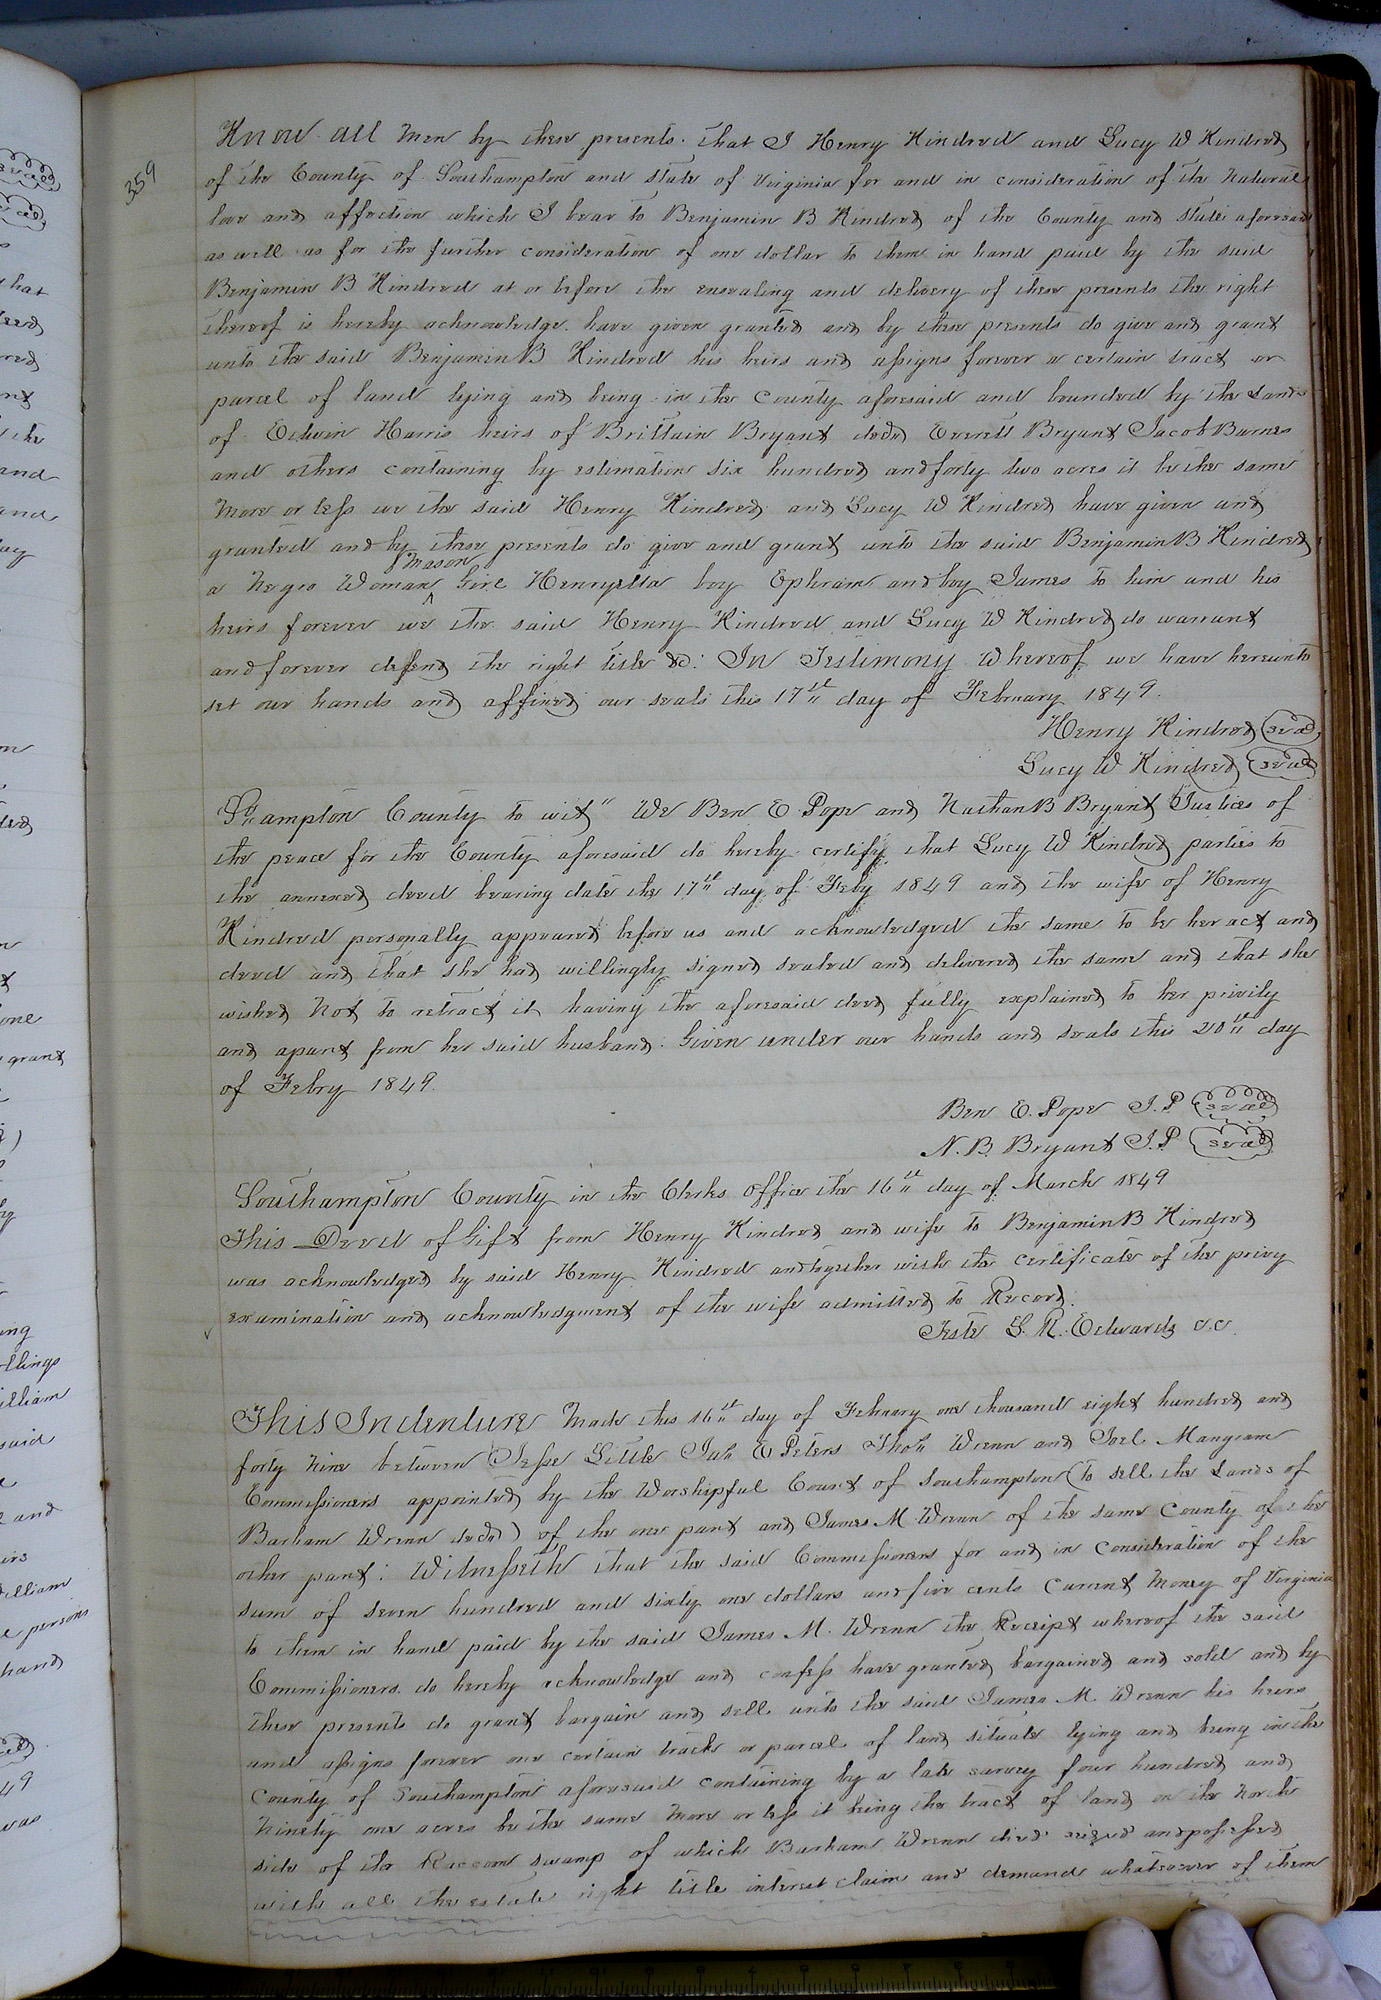 359
Know all Men by these presents. That I Henry Kindred and Lucy W Kindred
of the County of Southampton and State of Virginia for and in consideration of the Natural
love and affection which I bear to Benjamin B Kindred of the County and State aforesaid
as well as for the further consideration of one dollar to them in hand paid by the said
Benjamin B Kindred at or before the ensealing and delivery of these presents the right
thereof is hereby acknowledge. have given granted and by these presents do give and grant
unto the said Benjamin B Kindred his heirs and assigns forever a certain tract or
parcel of land lying and being in the County aforesaid and bounded by the Lands
of Edwin Harris heirs of Brittain Bryant decd, Everett Bryant Jacob Barnes
and others containing by estimation six hundred and forty two acres it be the same
More or less we the said Henry Kindred and Lucy W Kindred have given and
granted and by these presents do give and grant unto the said Benjamin B Kindred
a Negro Woman Mason Girl Henryetta boy Ephram and boy James to him and his
heirs forever we the said Henry Kindred and Lucy W Kindred do warrant
and forever defend the right title &c: In Testimony Whereof we have hereunto
set our hands and affixed our seals this 17th day of February 1849.
Henry Kindred seal
Lucy W Kindred seal
Sohampton County to wit" We Ben E Pope and Nathan B Bryant Justices of
the peace for the County aforesaid do hereby certify that Lucy W Kindred parties to
the annexed deed bearing date the 17th day of Feby 1849 and the wife of Henry
Kindred personally appeared before us and acknowledged the same to be her act and
deed and that she had willingly signed sealed and delivered the same and that she
wished Not to retract it having the aforesaid deed fully explained to her privily
and apart from her said husband. Given under our hands and seals this 20th day
of Febry 1849.
Ben E. Pope J.P seal
N. B. Bryant J.P seal
Southampton County in the Clerks Office the 16th day of March 1849
This Deed of Gift from Henry Kindred and wife to Benjamin B Kindred
was acknowledged by said Henry Kindred and together with the certificate of the privy
examination and acknowledgment of the wife admitted to Record.
Teste L. R. Edwards c.c.
This Indenture Made this 16th day of February one thousand eight hundred and
forty Nine between Jesse Little Jno E Peters Thos Wrenn and Joel Mangram
Commissioners appointed by the Worshipful Court of Southampton (To sell the Lands of
Barham Wrenn decd) of the one part and James M Wrenn of the same County of the
other part: Witnesseth that the said Commissioners for and in Consideration of the
sum of seven hundred and sixty one dollars and five cents Current Money of Virginia
to them in hand paid by the said James M. Wrenn the Receipt whereof the said
Commissioners do hereby acknowledge and confess have granted, bargained and sold and by
these presents do grant bargain and sell unto the said James M. Wrenn his heirs
and assigns forever one certain tract or parcel of land situate lying and being in the
County of Southampton aforesaid containing by a late survey four hundred and
Ninety one acres be the same More or less it being the tract of land on the North
side of the Raccoon swamp of which Barham Wrenn died seized and possessed
with all the estate right title interest claim and demand whatsoever of them